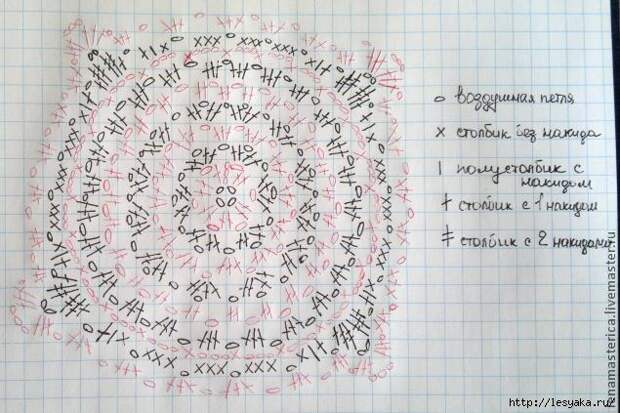 o воздушная петля
x столбик без накида
| полустолбик с
накидом
† столбик с 1 накидом
ǂ столбик с 2 накидами
namasterica.livemaster.ru
http://lesyaka.ru/